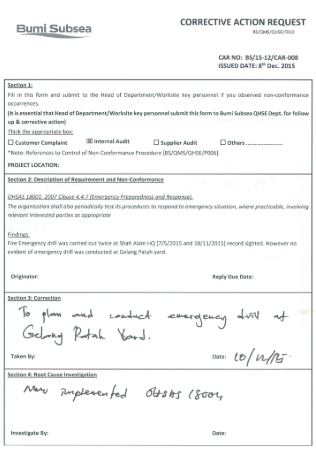 Bumi Subsea
CORRECTIVE ACTION REQUEST
BS/QMS/QHSE/F010
CAR NO: BS/15-12/CAR-008
ISSUED DATE: 8th Dec. 2015
Section 1:
Fill in this form and submit to the Head of Department/Worksite key personnel if you observed non-conformance
occurrences.
(It is essential that Head of Department/Worksite key personnel submit this form to Bumi Subsea QHSE Dept. for follow
up & corrective action)
Thick the appropriate box:
☐ Customer Complaint ☒ Internal Audit ☐ Supplier Audit ☐ Others
*Note: References to Control of Non-Conformance Procedure [BS/QMS/QHSE/P006]
PROJECT LOCATION:
Section 2: Description of Requirement and Non-Conformance
OHSAS 18001: 2007 Clause 4.4.7 (Emergency Preparedness and Response).
The organisation shall also periodically test its procedures to respond to emergency situation, where practicable, involving
relevant interested parties as appropriate
Findings:
Fire Emergency drill was carried out twice at Shah Alam HQ [7/5/2015 and 18/11/2015] record sighted. However no
evident of emergency drill was conducted at Gelang Patah yard.
Originator: Reply Due Date:
Section 3: Correction
To plan and conduct emergency drill at
Gelang Patah Yard.
Taken By: Date: 10/12/15
Section 4: Root Cause Investigation
New implemented OHSAS 18001
Investigate By: Date: